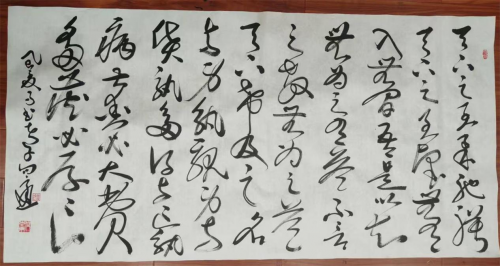 天下之至柔馳騁
天下之至堅無有
入無間吾是以知
無為之有益不言
之教無為之益
天下希及之名
與身孰親身與
貨孰多得與亡孰
病甚愛必大費
多藏必厚亡